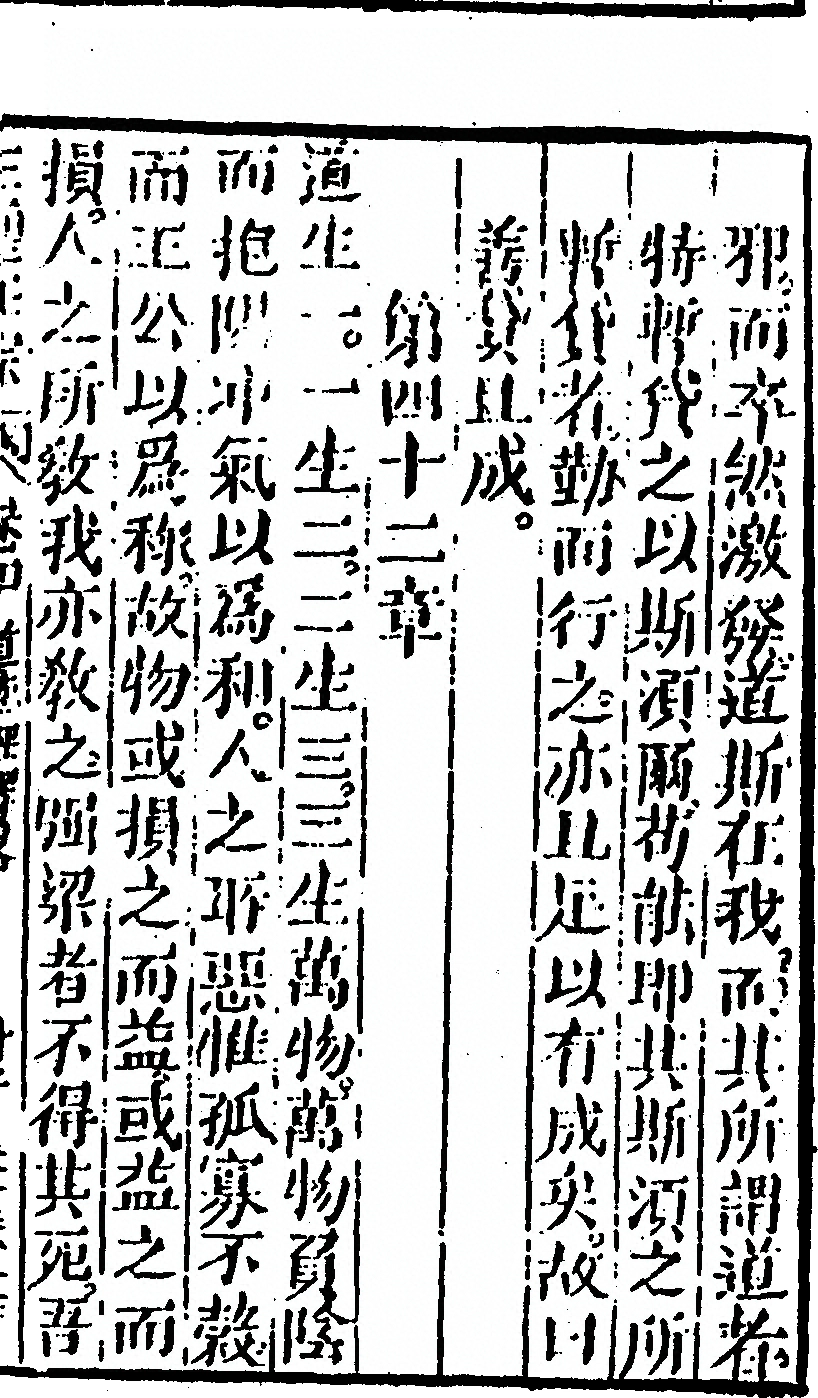 邪而卒然激發道斯在我而其所謂道者
特暫貸之以斯須爾苟能即其斯須之所
暫貸者勤而行之亦且足以有成矣故曰
善貸且成
第四十二章
道生一一生二二生三三生萬物萬物負陰
而抱陽冲氣以爲和人之所惡惟孤寡不穀
而王公以爲稱故物或損之而益或益之而
損人之所教我亦教之強梁者不得其死吾